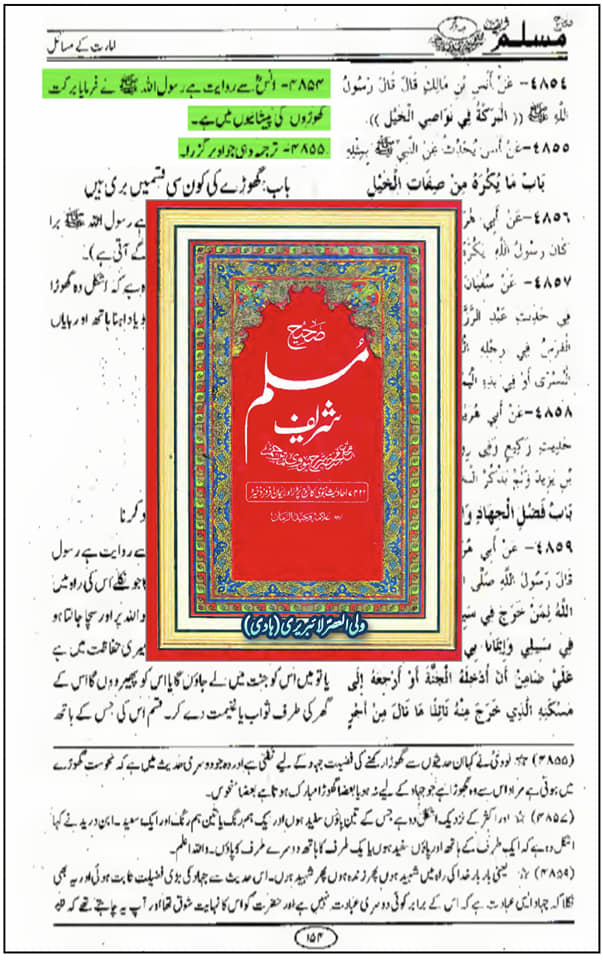 صحیح مسلم
امارت کے مسائل
٤٨٥٤- عَنْ أَنَسِ بْنِ مَالِكٍ قَالَ قَالَ رَسُولُ
اللهِ ﷺ (( الْبَرَكَةُ فِي نَوَاصِي الْخَيْلِ )).
٤٨٥٥- عَنْ أَنَسٍ يُحَدِّثُ عَنِ النَّبِيِّ ﷺ بِمِثْلِهِ
بَابُ مَا يُكْرَهُ مِنْ صِفَاتِ الْخَيْلِ
٤٨٥٦- عَنْ أَبِي هُرَ
كَانَ رَسُولُ اللهِ يَكْرَهُ
٤٨٥٧- عَنْ سُفْيَانَ
فِي حَدِيثِ عَبْدِ الرَّزَّ
الْفَرَسُ فِي رِجْلِهِ الْ
الْيُسْرَى أَوْ فِي يَدِهِ الْيُمْ
٤٨٥٨- عَنْ أَبِي هُرَيْ
حَدِيثِ وَكِيعٍ وَفِي رِوَ
بْنِ يَزِيدَ وَلَمْ يَذْكُرِ ال
بَابُ فَضْلِ الْجِهَادِ وَا
٤٨٥٩- عَنْ أَبِي هُرَ
قَالَ رَسُولُ اللهِ صَلَّى ا
اللهُ لِمَنْ خَرَجَ فِي سَبِيـ
فِي سَبِيلِي وَإِيمَانًا بِي
عَلَيَّ ضَامِنٌ أَنْ أُدْخِلَهُ الْجَنَّةَ أَوْ أُرْجِعَهُ إِلَى
مَسْكَنِهِ الَّذِي خَرَجَ مِنْهُ نَائِلًا مَا نَالَ مِنْ أَجْرٍ
۴۸۵۴- انسؓ سے روایت ہے رسول اللہ ﷺ نے فرمایا برکت
گھوڑوں کی پیشانیوں میں ہے۔
۴۸۵۵- ترجمہ وہی جو اوپر گزرا۔
باب: گھوڑے کی کون سی قسمیں بری ہیں
ہے رسول اللہ ﷺ برا
گے آتی ہے)۔
ہ ہے کہ اشکل وہ گھوڑا
و یا داہنا ہاتھ اور بایاں
و کرنا
سے روایت ہے رسول
کا جو نکلے اس کی راہ میں
و اللہ پر اور سچا جانتا ہو
میری حفاظت میں ہے
یا تو میں اس کو جنت میں لے جاؤں گا یا اس کو پھیر دوں گا اس کے
گھر کی طرف ثواب یا غنیمت دے کر۔ قسم اس کی جس کے ہاتھ
صحیح
مسلم
شریف
ولی العصر لائبریری (ہادی)
(۴۸۵۵) ☆ نووی نے کہا ان حدیثوں سے گھوڑا رکھنے کی فضیلت جہاد کے لیے نکلتی ہے اور وہ جو دوسری حدیث میں ہے کہ نحوست گھوڑے
میں ہوتی ہے مراد اس سے وہ گھوڑا ہے جو جہاد کے لیے نہ ہو یا بعضا گھوڑا مبارک ہوتا ہے بعضا منحوس۔
(۴۸۵۷) ☆ اور اکثر کے نزدیک اشکل وہ ہے جس کے تین پاؤں سفید ہوں اور ایک ہم رنگ یا تین ہم رنگ اور ایک سفید۔ ابن درید نے کہا
اشکل وہ ہے کہ ایک طرف کے ہاتھ اور پاؤں سفید ہوں یا ایک طرف کا ہاتھ دوسرے طرف کا پاؤں۔ واللہ اعلم۔
(۴۸۵۹) ☆ یعنی بار بار خدا کی راہ میں شہید ہوں پھر زندہ ہوں پھر شہید ہوں۔ اس حدیث سے جہاد کی بڑی فضیلت ثابت ہوئی اور یہ بھی
نکلا کہ جہاد ایسی عبادت ہے کہ اس کے برابر کوئی دوسری عبادت نہیں ہے اور حضرت کو اس کا نہایت شوق تھا اور آپ یہ چاہتے تھے کہ
۱۵۴